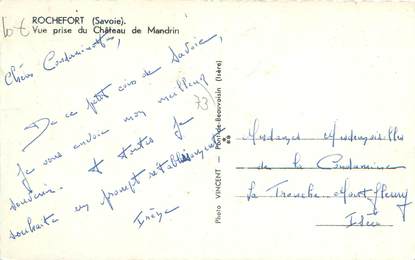 ROCHEFORT (Savoie).
Vue prise du Château de Mandrin
10 €
73
De ce petit coin de Savoie,
Je vous envoie mon meilleur
souvenir. et toutes je
souhaite un prompt rétablissement
Irène
Photo VINCENT — Pont-de-Beauvoisin (Isère)
Mesdemoiselles
de la Condamine
La Tronche-Montfleury
Isère